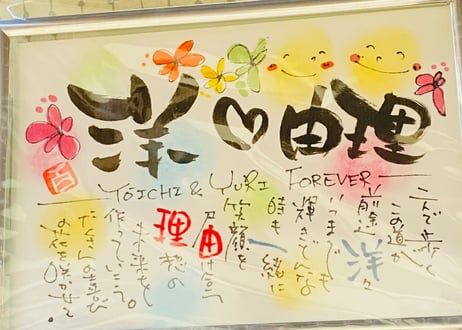 洋一♡由理
YŌICHI & YURI FOREVER
二人で歩く
この道が
前途洋々
いつまでも
輝きどんな
時も一緒に
笑顔を
理想の
未来を
作っていこう。
たくさんの喜び
の花を咲かせて。